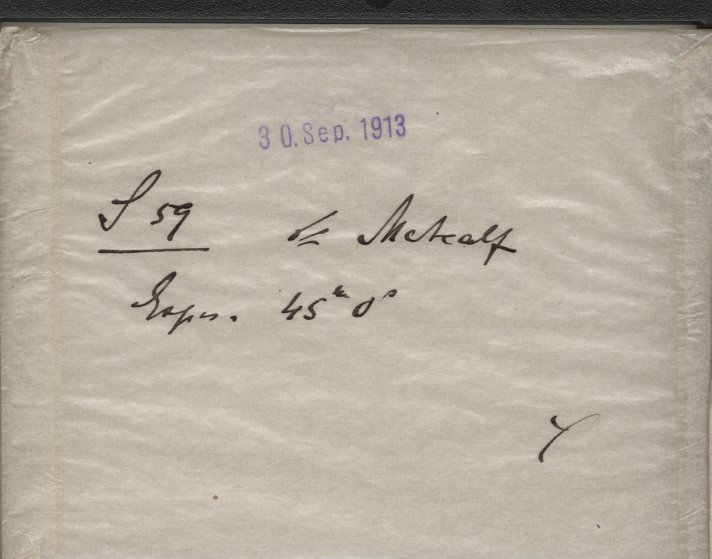 30. Sep. 1913
S 59 Metcalf
Expos. 45ᵐ 0ˢ